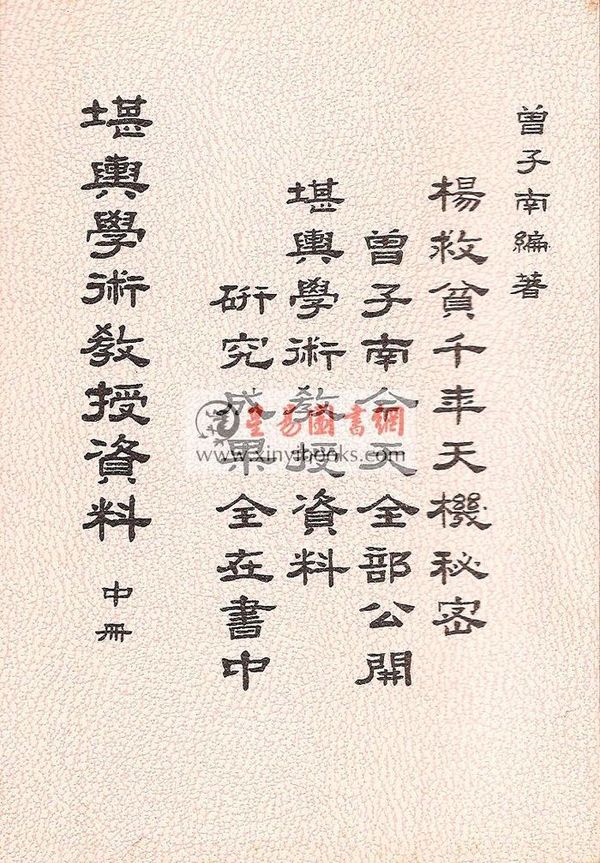 曾子南編著
楊救貧千年天機秘密
曾子南今天全部公開
堪輿學術教授資料
研究成果全在書中
堪輿學術教授資料 中冊
星易圖書網
www.xinyibooks.com